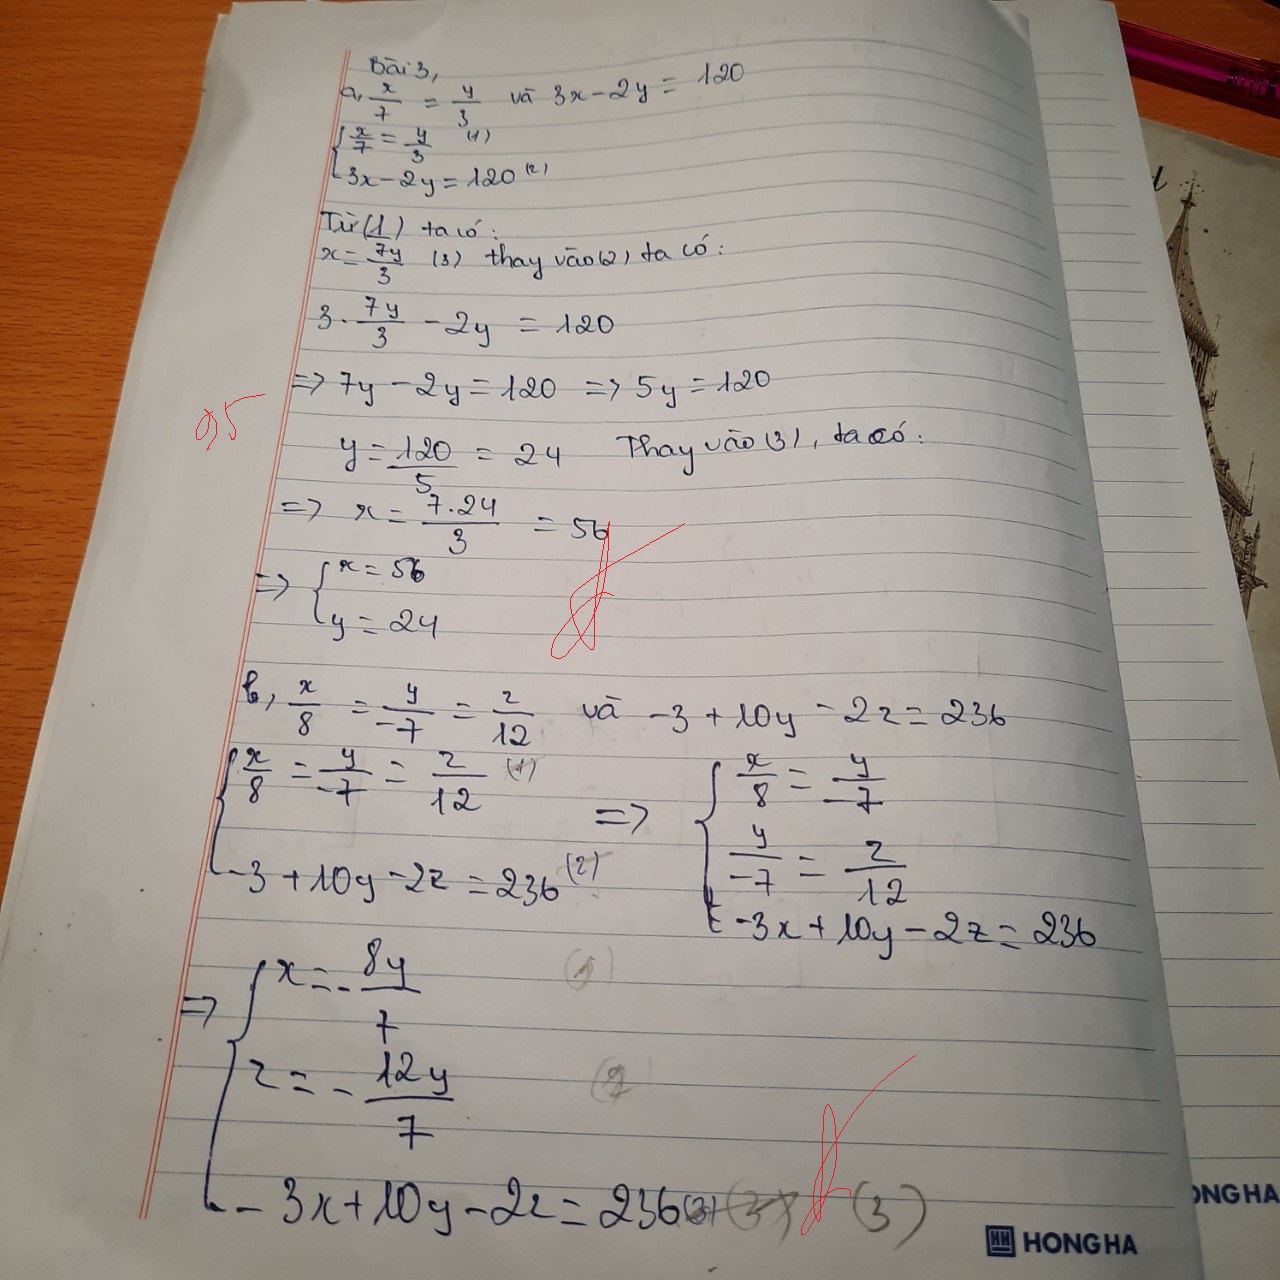 Bài 3,
a, x/7 = y/3 và 3x - 2y = 120
{ x/7 = y/3 (1)
3x - 2y = 120 (2)
Từ (1) ta có:
x = 7y/3 (3) thay vào (2), ta có:
3 . 7y/3 - 2y = 120
=> 7y - 2y = 120 => 5y = 120
0,5
y = 120/5 = 24 Thay vào (3), ta có:
=> x = 7.24/3 = 56
=> { x = 56
y = 24
b, x/8 = y/-7 = z/12 và -3 + 10y - 2z = 236
{ x/8 = y/-7 = z/12 (1)
-3 + 10y - 2z = 236 (2)
=> { x/8 = y/-7
y/-7 = z/12
-3x + 10y - 2z = 236
=> { x = - 8y/7 (1)
z = - 12y/7 (2)
- 3x + 10y - 2z = 236 (3)
HONG HA
ONG HA